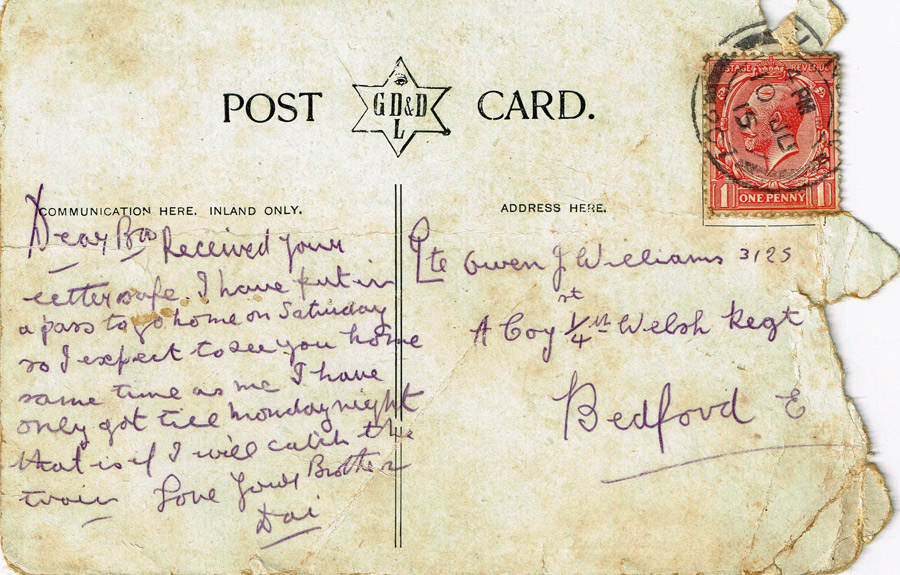 POST CARD.
G D & D
L
POSTAGE REVENUE
4 PM
10 JU
15
1 ONE PENNY 1
COMMUNICATION HERE. INLAND ONLY.
ADDRESS HERE.
Dear Bro Received your
letter safe. I have put in
a pass to go home on Saturday
so I expect to see you home
same time as me I have
only got till Monday night
that is if I will catch the
train Love Your Brother
Dai
Pte Owen J Williams 3125
A Coy 1st/4th Welsh Regt
Bedford E